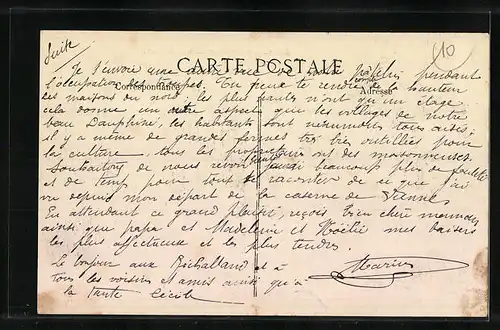 Suite
10
CARTE POSTALE
Correspondance
Adresse
Je t'envoie une autre vue de notre pendant
l'occupation des troupes. Tu peux te rendre compte de la hauteur
des maisons du nord, les plus hautes n'ont qu'un étage
cela donne un autre aspect que les villages de notre
beau Dauphiné, les habitants sont néanmoins tous aisés,
il y a même de grandes fermes très très outillées pour
la culture, tous les propriétaires ont des moissonneuses.
Souhaitons de nous revoir, j'aurai beaucoup plus de facilité
et de temps pour tout te raconter de ce que j'ai
vu depuis mon départ de la caserne de Vannes
En attendant ce grand plaisir, reçois bien chère
ainsi que papa et Madeleine et mes baisers
les plus affectueux et les plus tendres.
Le bonjour aux et à
tous les voisins et amis ainsi qu'à
la tante Cécile
Marius